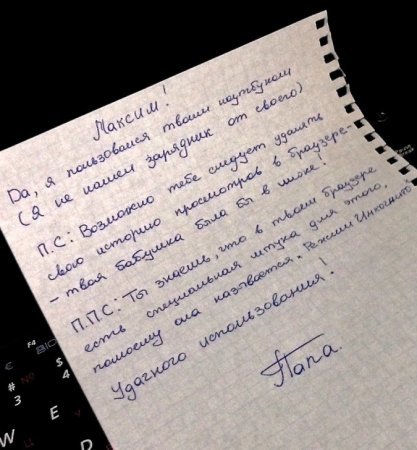 Максим!
Да, я пользовался твоим ноутбуком
(Я не нашел зарядник от своего)
П.С: Возможно тебе следует удалять
свою историю просмотров в браузере-
- твоя бабушка была бы в шоке!
П.П.С: Ты знаешь, что в твоем браузере
есть специальная штука для этого,
помоему она называется "Режим Инкогнито
Удачного использования!
Папа.
F4
€
$
#
3
4
W
E
D